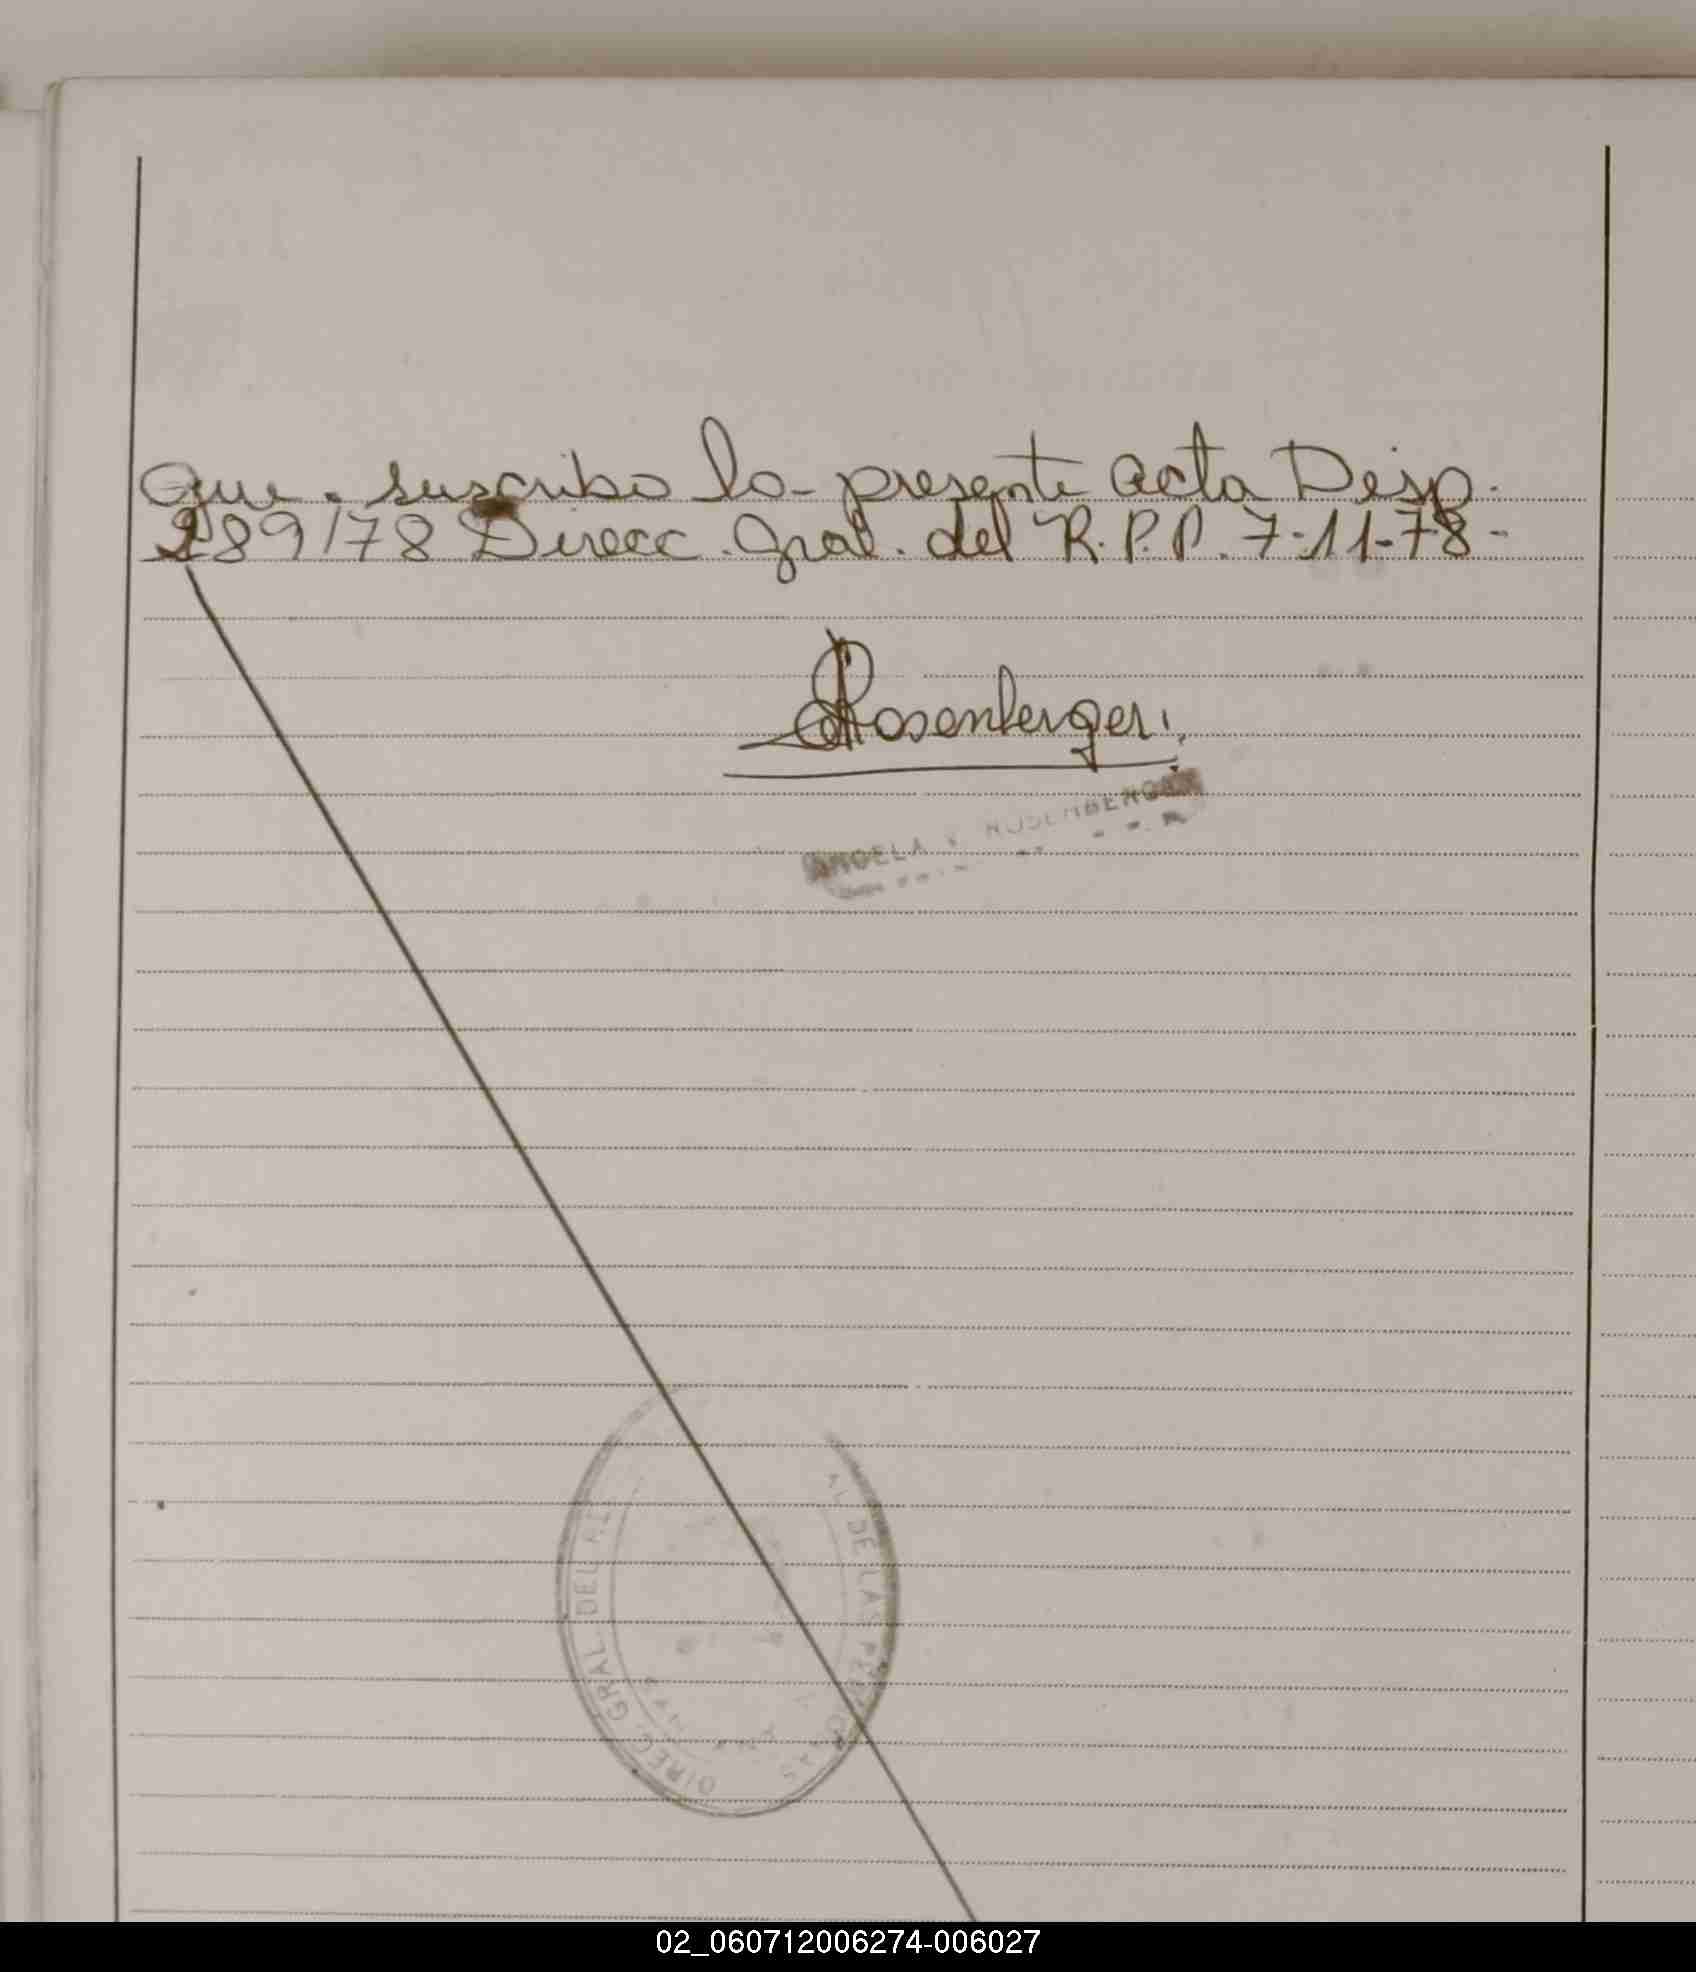 que. suscribo la presente acta Desp.
289/78 Direcc. Gral. del R.P.P. 7-11-78-
Rosenberger.
ANGELA V ROSEMBERGER
DIREC. GRAL. DEL DE LAS PERSONAS
02_060712006274-006027